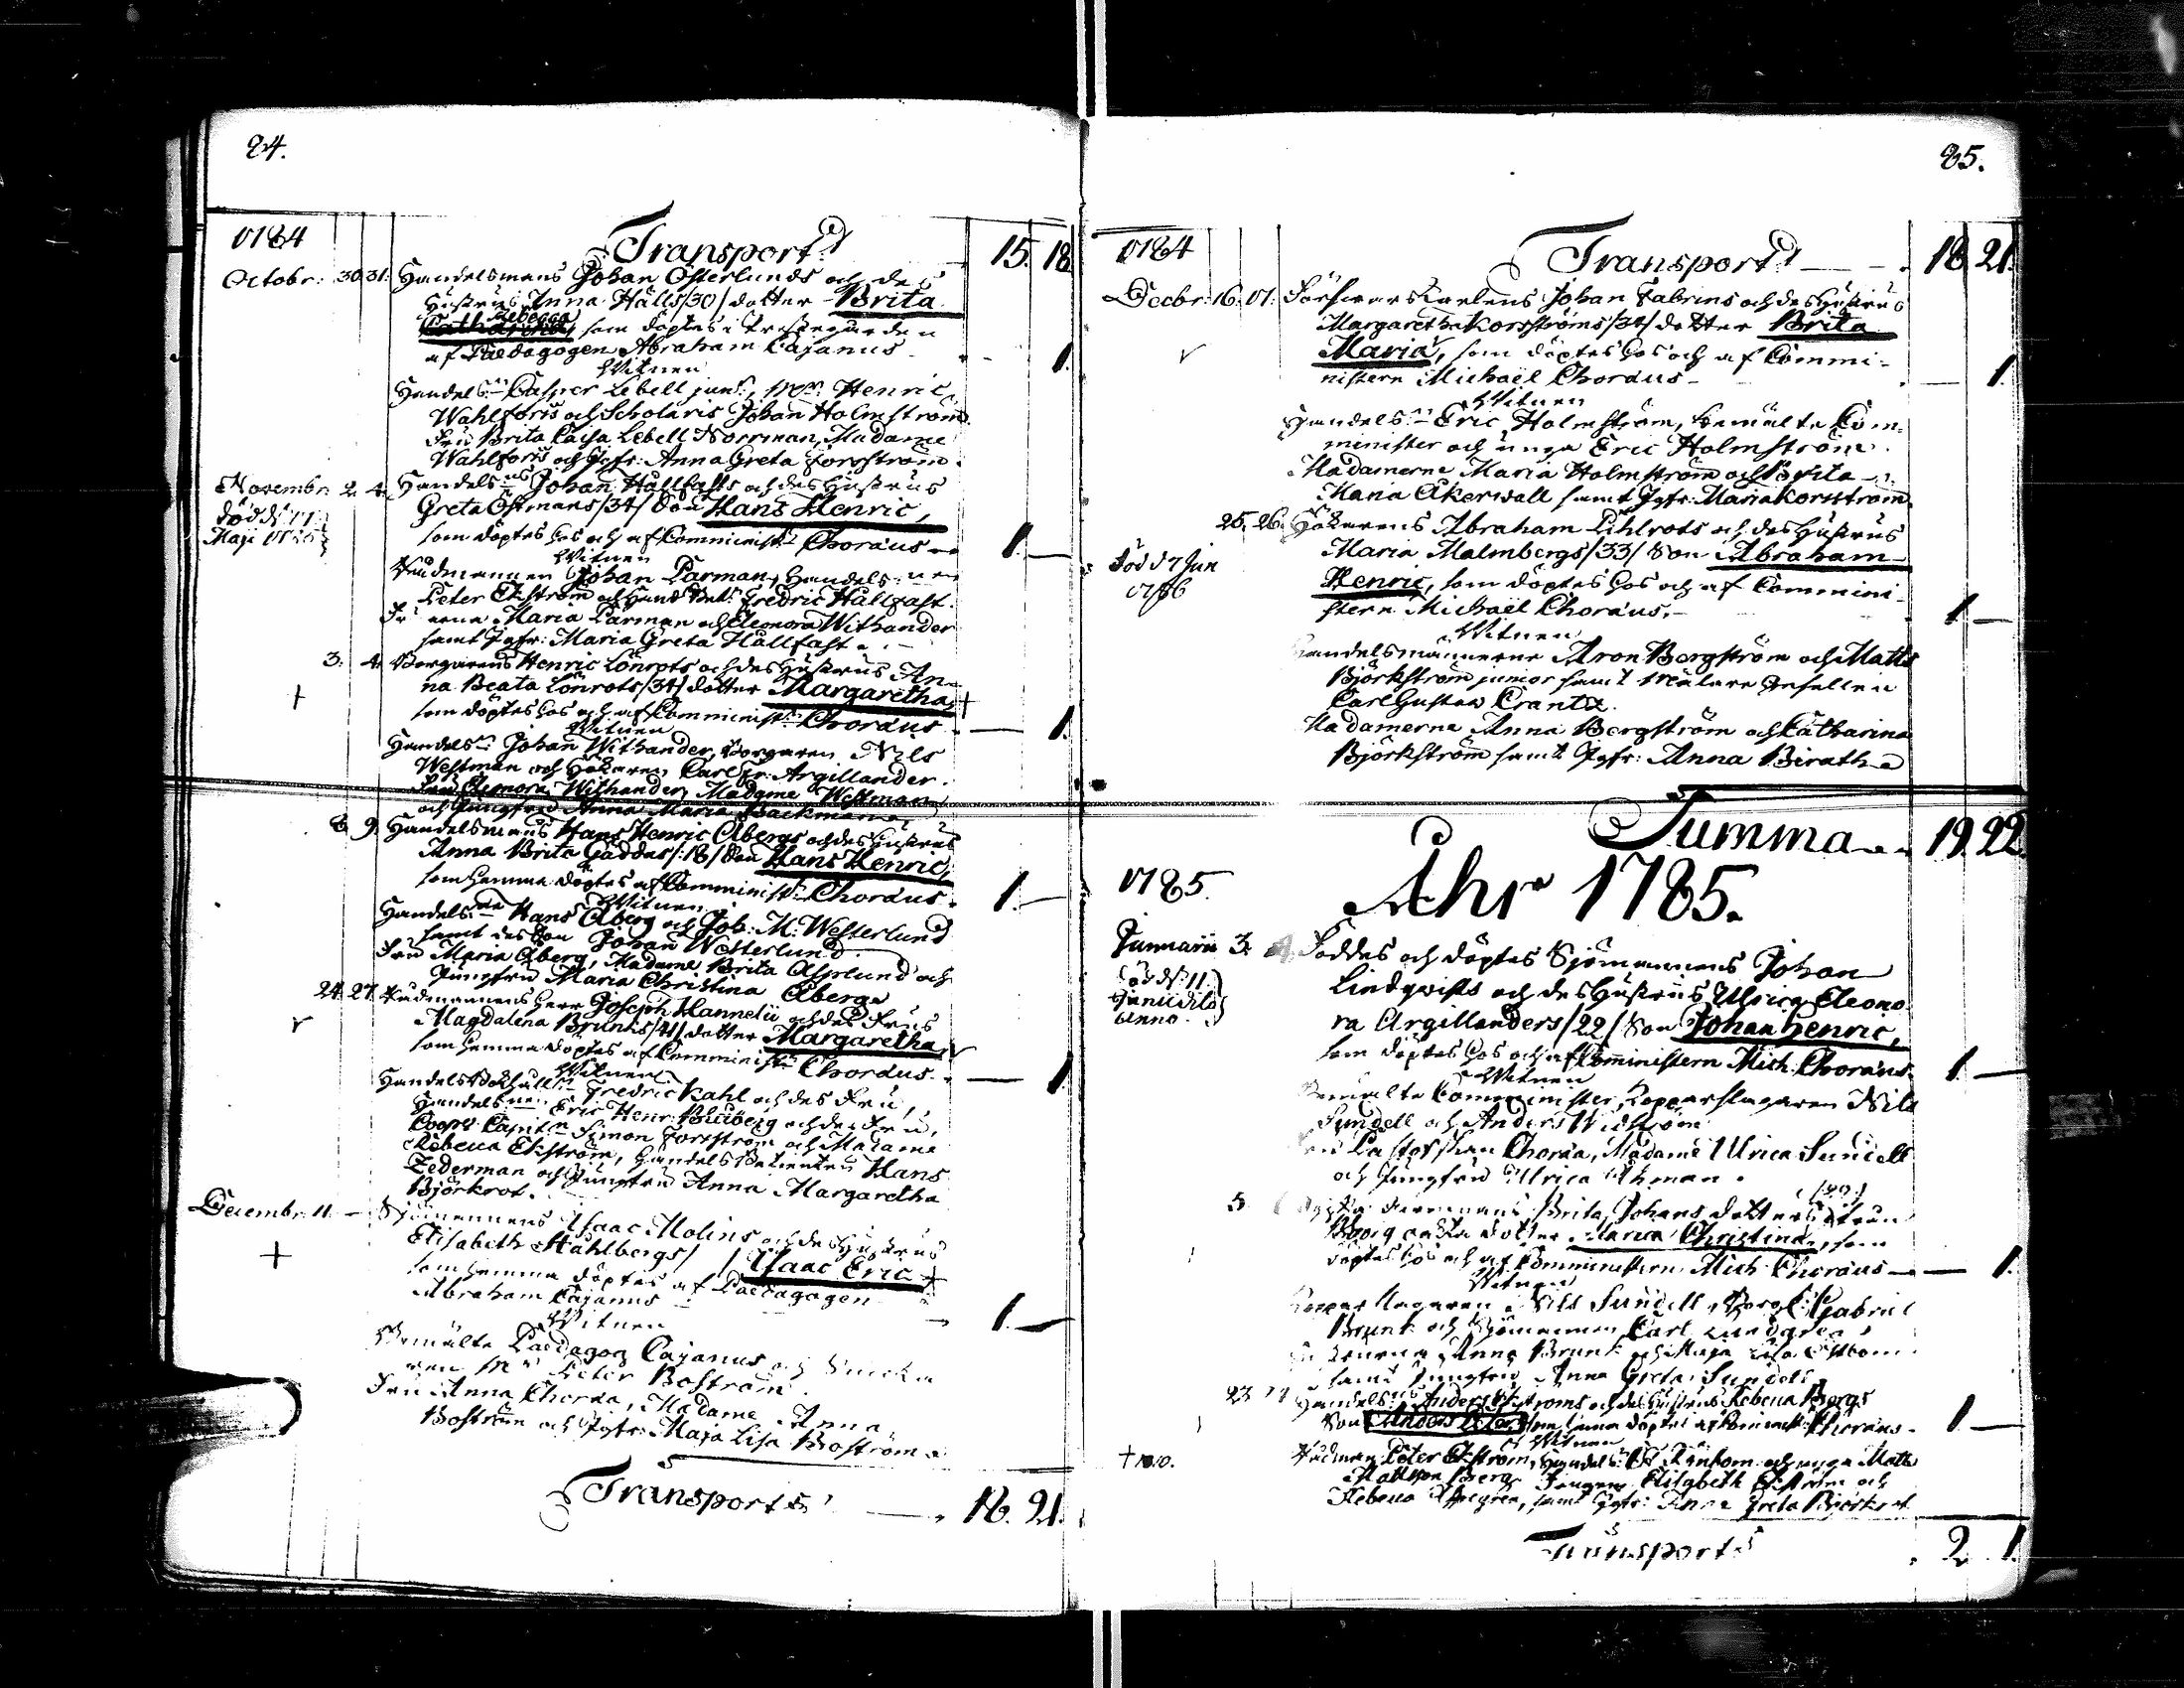 84.
1784
Transport
15. 18.
Octobr: 30. 31. Handelsmans Johan Österlunds och des
Hustrus Anna Hälls /30/ dotter Brita
Rebecca
Catharina, som döptes i Prestegården
af Paedagogen Abraham Cajanus
1.
Witnen
Handels:n Casper Lebell jun:r, Henric
Wahlfors och Scholaris Johan Holmström
Fru Brita Caisa Lebell Norrman, Madame
Wahlfors och Jgfr: Anna Greta Forsström.
Novembr: 2. 4. Handels:ns Johan Hällfasts och des Hustrus
Greta Östmans /34/ Son Hans Henric,
död d: 17
Maji 1785
som döptes hos och af Comminist:n Choraus
1.
Witnen
Rådmannen Johan Parman, Handels:
Peter Ekström och Hand. Bet: Fredric Hällfast.
Maria Parman och Eleonora Withander
samt Jgfr: Maria Greta Hällfast.
3. 4. Borgarens Henric Lönrots och des Hustrus An-
na Beata Lönrots /34/ dotter Margaretha,
+
som döptes hos och af Comminist:n Choraus
1.
Witnen
Handels:n Johan Withander, Borgaren Nils
Westman och Hökaren Carl Fr: Argillander.
Fru Eleonora Withander, Madame Westman
och Jungfru Anna Maria Backman
8. 9. Handelsmans Hans Henric Åbergs och des Hustrus
Anna Brita Gaddas /18/ Son Hans Henric,
som hemma döptes af Comminist:n Choraus.
1.
Witnen
Handels: Hans Åberg och Job: M: Westerlund
samt des Son Johan Westerlund
Fru Maria Åberg, Madame Brita Asplund och
Jungfru Maria Christina Åberg
24. 27. Rådmannens Herr Joseph Hannelii och des Frus
Magdalena Brunks /41/ dotter Margaretha,
som hemma döptes af Comminist:n Choraus.
1.
Witnen
Handels Bokhåll:n Fredric Kahl och des Fru,
Handels: Eric Henr: Burberg och des Fru,
Coop: Capit:n Simon Forsström och Madame
Rebecca Ekström, Handels Betienten Hans
Zederman och Jungfru Anna Margaretha
Björkrot.
Decembr: 11. Sjömannens Isaac Molins och des Hustrus
Elisabeth Ståhlbergs / / Isaac Eric
+
som hemma döptes af Paedagogen
Abraham Cajanus
1.
Witnen
Bemälte Paedagog Cajanus och
Peter Boström.
Fru Anna Choraa, Madame Anna
Boström och Jgfr: Maja Lisa Boström
Transport
18. 21.
85.
1784
Transport
18. 21.
Decbr: 16. 17. Försvars Karlens Johan Fabrins och des Hustrus
Margaretha Korsströms /34/ dotter Brita
Maria, som döptes hos och af Commi-
nistern Michaël Choraus
1.
Witnen
Handels:n Eric Holmström, bemälte Com-
minister och unga Eric Holmström.
Madamerne Maria Holmström och Brita
Maria Åkerwall samt Jgfr: Maria Korsström.
25. 26. Hökarens Abraham Pihlrots och des Hustrus
Maria Malmbergs /33/ Son Abraham
Död d 7 Jun
1786
Henric, som döptes hos och af Commini-
stern Michaël Choraus.
1.
Witnen
Handelsmännerne Aron Bergström och Matts
Björkström junior samt Målare Gesellen
Carl Gustaw Crantz.
Madamerne Anna Bergström och Catharina
Björkström samt Jgfr: Anna Birath
Summa 19. 22.
Åhr 1785.
1785.
Januarii 3. 4. Föddes och döptes Sjömannens Johan
Lindqwists och des Hustrus Ulrica Eleono-
död d: 11
Junii dito
anno.
ra Argillanders /22/ Son Johan Henric,
som döptes hos och af Comministern Mich: Choraus.
1.
Witnen
Bemälte Comminister, Kopparslagaren Nils
Sundell och Anders Widström
Choraa, Madame Ulrica Sundell
och Jungfru Ulrica Åhman.
5. Brita Johans dotters
dotter Maria Christina, som
döptes hos och af Comministern Mich: Choraus
1.
Witnen
Kopparslagaren Nils Sundell, Borg: Gabriel
Brunk och Sjömannen Carl Lundgren,
Anna Brunk och Maja Lisa Östbom
samt Jungfru Anna Greta Sundell
23. Handels:ns Anders och des Hustrus Rebecca Bergs
Son Anders Peter, som hemma döptes af Cominist: Choraus.
1.
Witnen
+ 1810.
Rådman Peter Ekström, Handels: och unga Matts
Mattsson Berg, Elisabeth Ekström och
Rebecca samt Jgfr: Anna Greta Björkrot
Transport
2. 1.